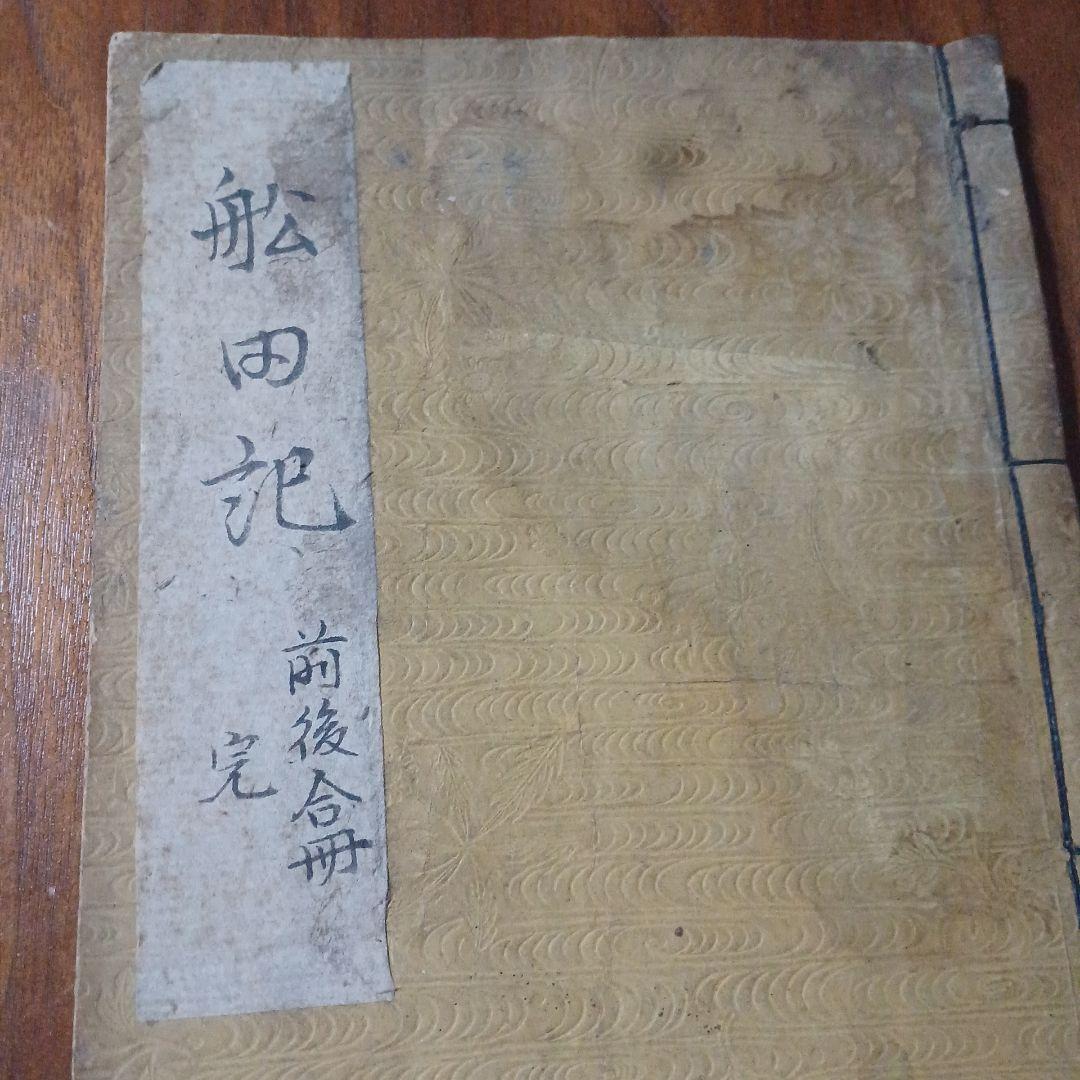 舩田記
前後合冊
完